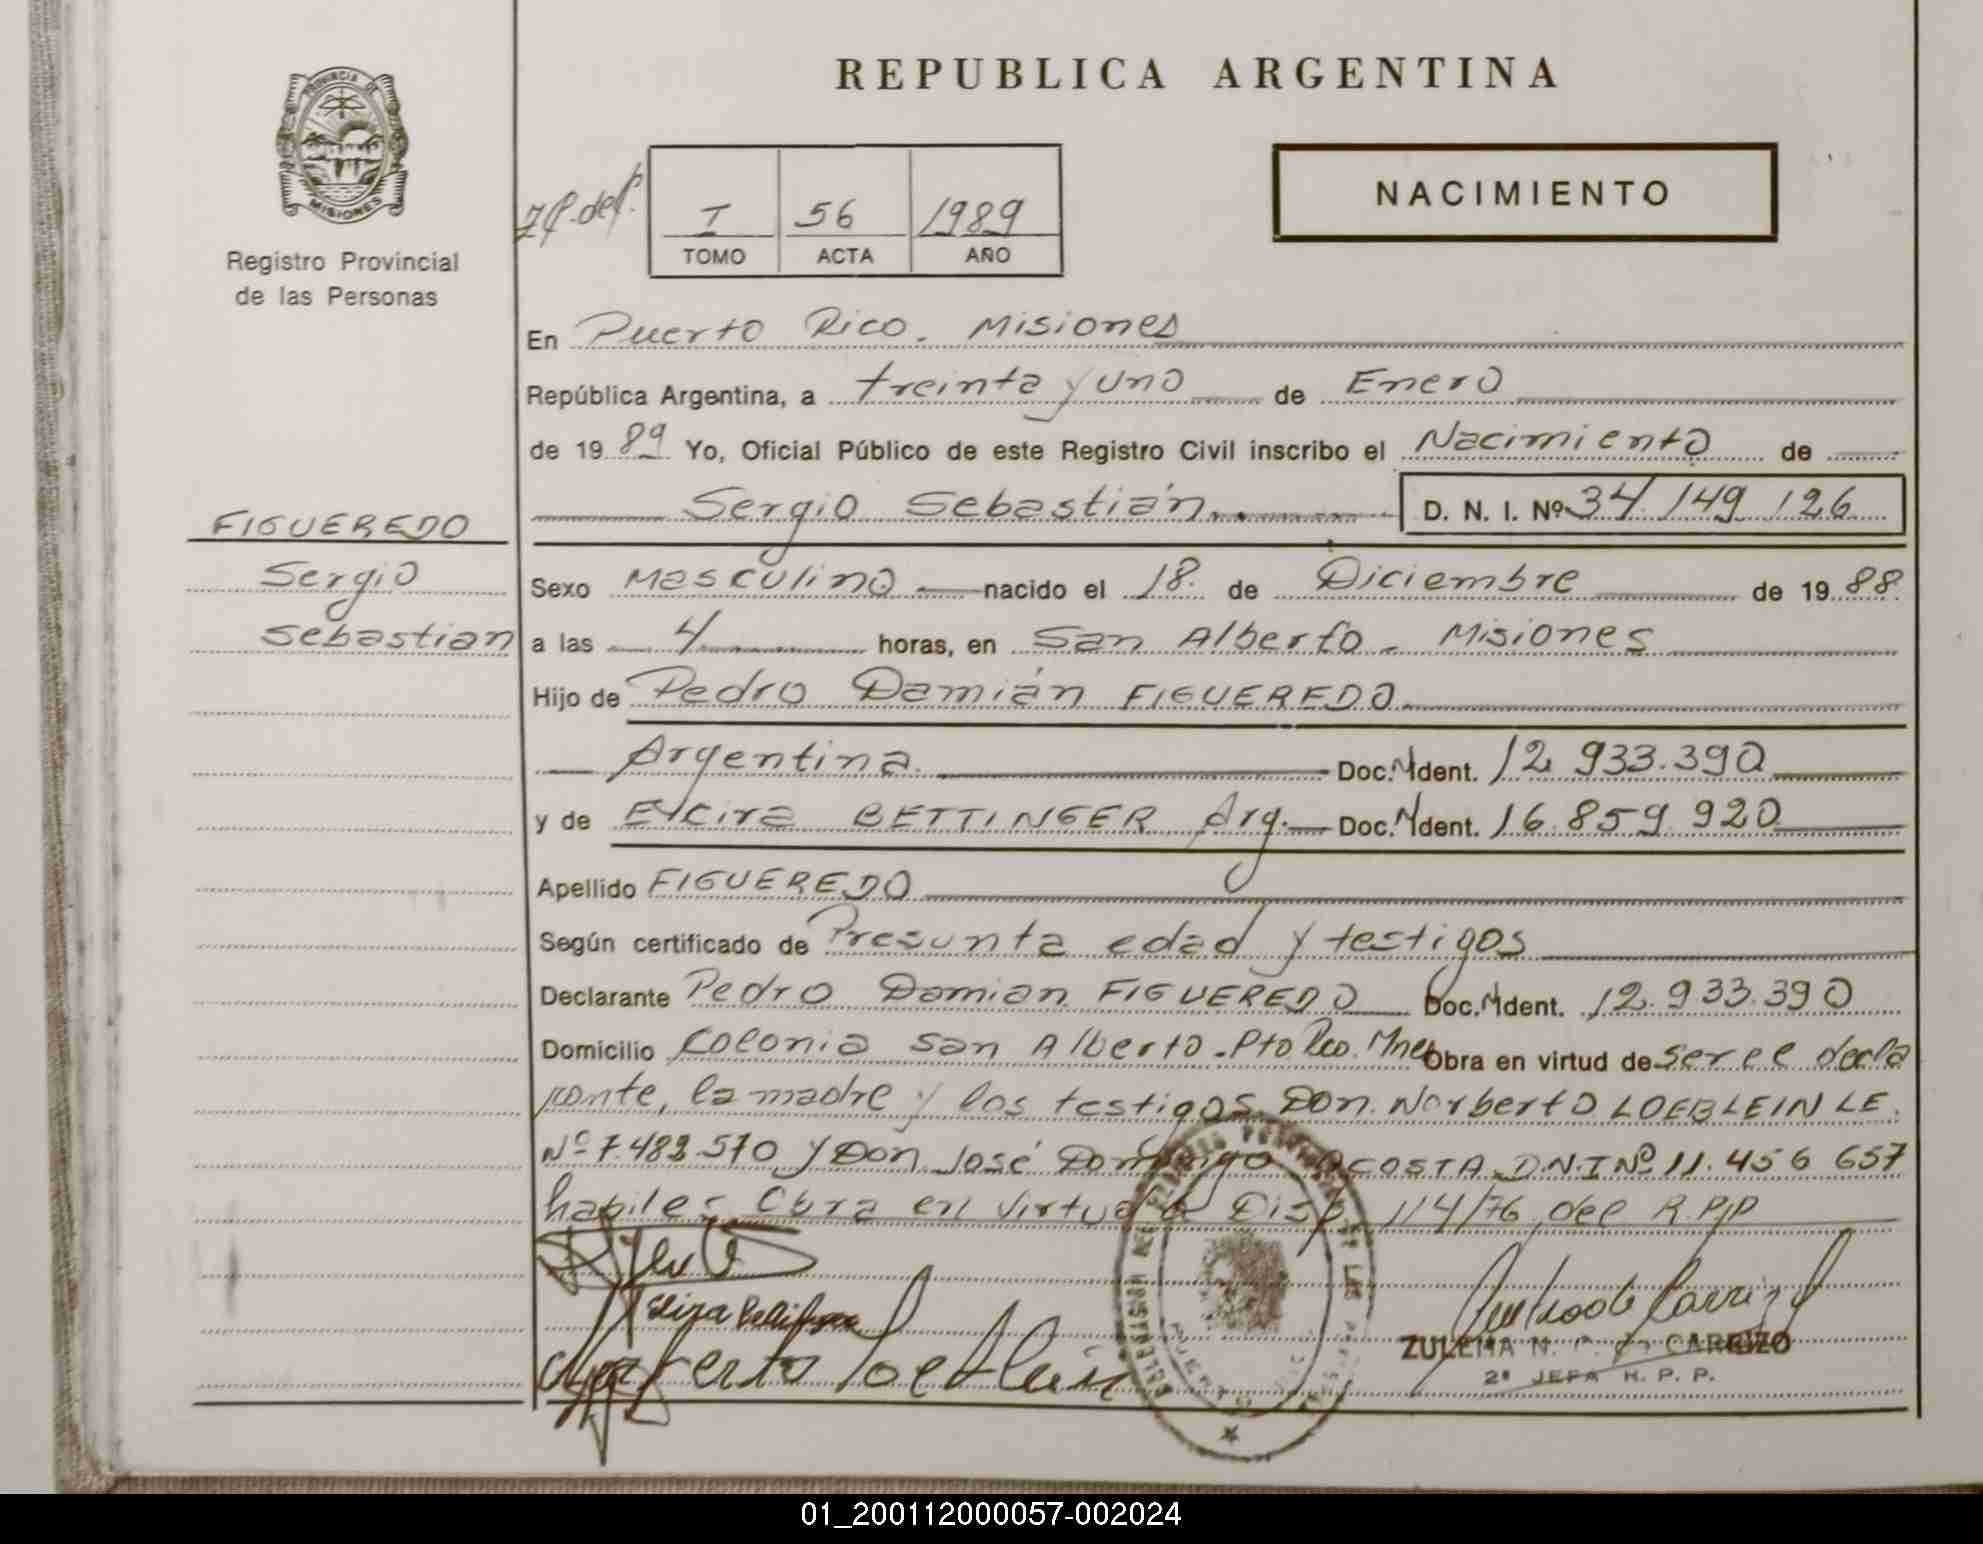 REPUBLICA ARGENTINA
PROVINCIA DE
MISIONES
Registro Provincial
de las Personas
I 56 1989
TOMO ACTA AÑO
NACIMIENTO
En Puerto Rico. Misiones
República Argentina, a treinta y uno de Enero
de 1989 Yo, Oficial Público de este Registro Civil inscribo el Nacimiento de
Sergio Sebastián D. N. I. Nº 34.149.126
FIGUEREDO
Sergio
Sebastian
Sexo Masculino nacido el 18. de Diciembre de 1988.
a las 4 horas, en San Alberto - Misiones
Hijo de Pedro Damián FIGUEREDO
Argentina Doc. Ident. 12.933.390
y de BETTINGER Arg. Doc. Ident. 16.859.920
Apellido FIGUEREDO
Según certificado de Presunta edad y testigos
Declarante Pedro Damian FIGUEREDO Doc. Ident. 12.933.390
Domicilio Colonia San Alberto - Pto Rco. Mnes Obra en virtud de ser el decla
rante, la madre y los testigos Don Norberto LOEBLEIN LE.
Nº 7.483.570 y Don José Domingo ACOSTA D.N.I Nº 11.456.657
habiles Obra en virtud a Disp. 114/76 del R.P.P
ZULEMA N. de CARRIZO
2ª JEFA R. P. P.
01_200112000057-002024